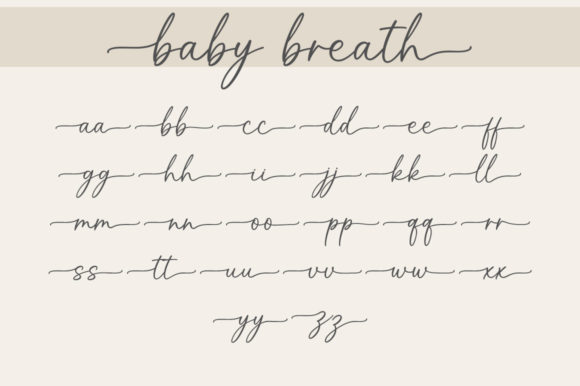 baby breath
aa bb cc dd ee ff
gg hh ii jj kk ll
mm nn oo pp qq rr
ss tt uu vv ww xx
yy zz